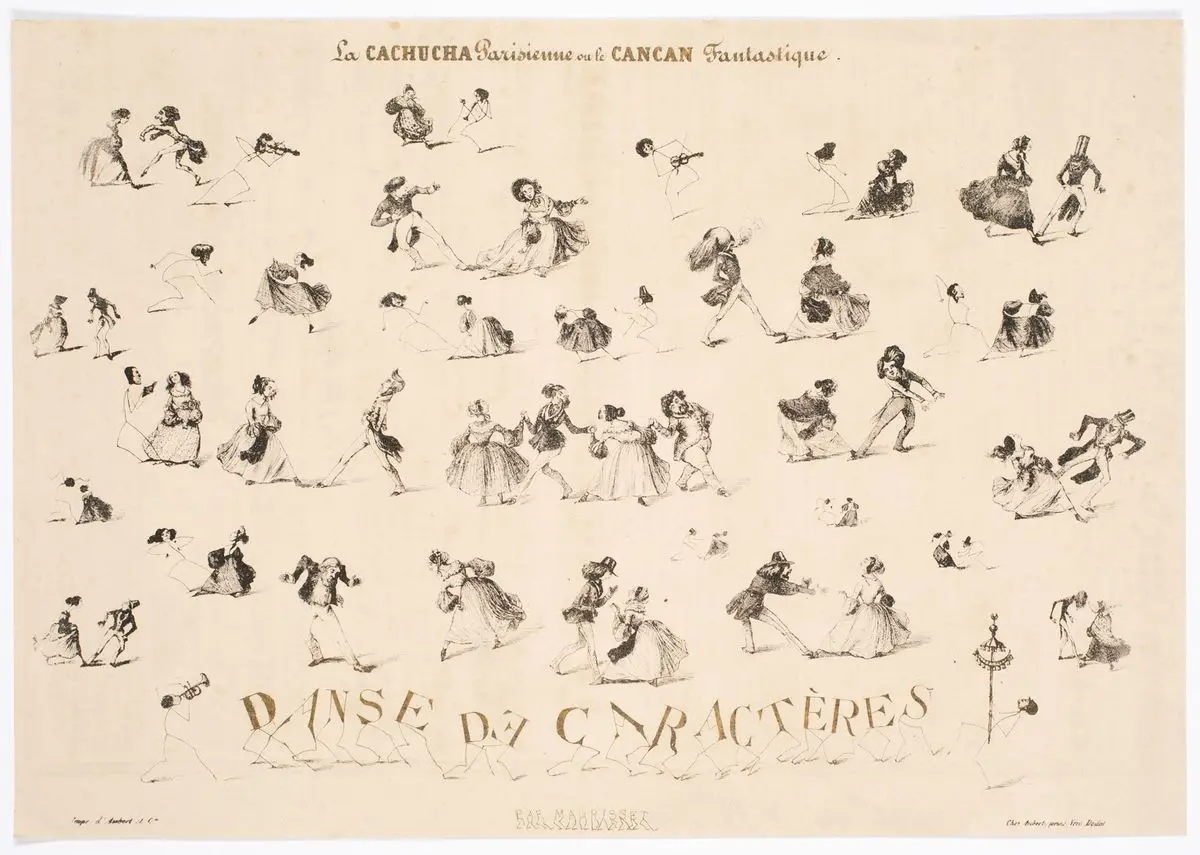 La CACHUCHA Parisienne ou le CANCAN Fantastique.
DANSE DE CARACTÈRES
PAR MAURISSET
Imp. d'Aubert & Cie
Chez Aubert, Véro Dodat